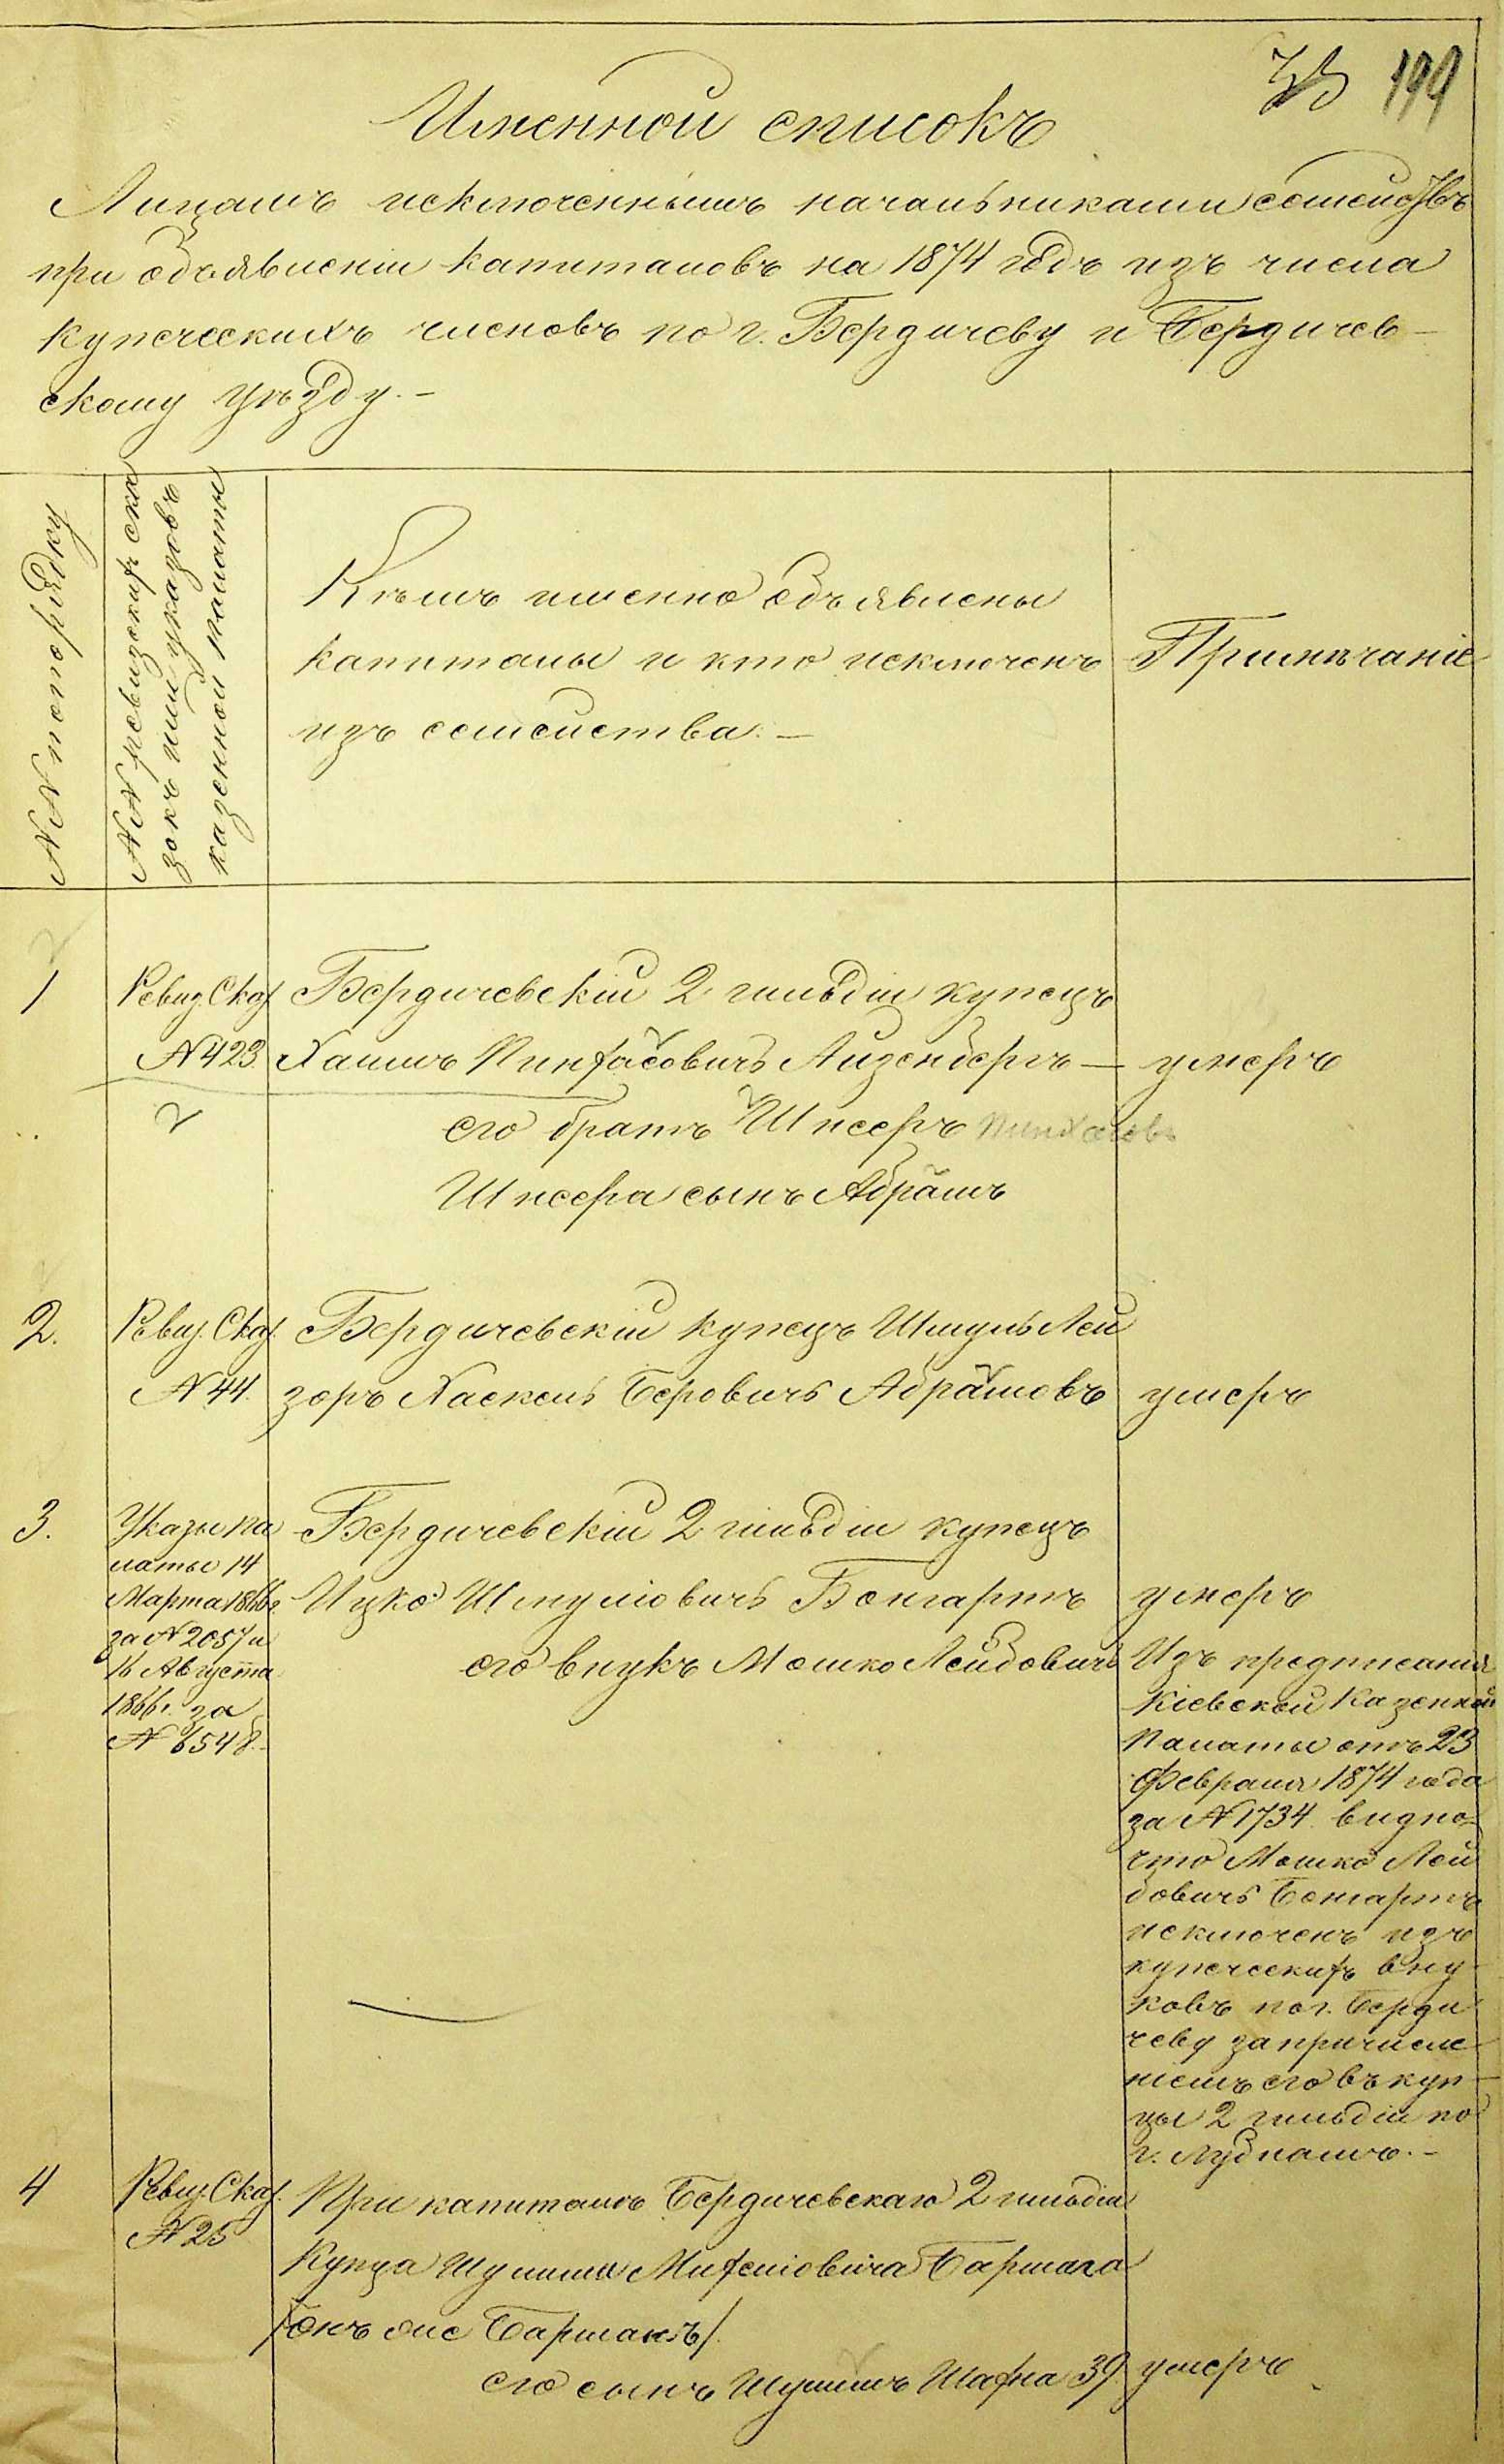 199
Именной списокъ
Лицамъ исключеннымъ начальниками семействъ
при объявленіи капиталовъ на 1874 годъ изъ числа
купеческихъ членовъ по г. Бердичеву и Бердичев-
скому уѣзду.-
№№ по порядку
№№ ревизских ска
зокъ или указовъ
казенной палаты
Кѣмъ именно объявлены
капиталы и кто исключенъ
изъ семейства. —
Примѣчаніе
1
Ревиз. Сказ.
Бердичевскій 2 гильдіи купецъ
№ 423
Хаимъ Пинхасовичъ Айзенбергъ —
умеръ
его братъ Шнееръ Пинхасовъ
Шнеера сынъ Абрамъ
2.
Ревиз. Сказ.
Бердичевскій купецъ Шмуль Лей
№ 44.
зоръ Хаскель Беровичъ Абрамовъ
умеръ
3.
Указы па
Бердичевскій 2 гильдіи купецъ
латы 14
Марта 1866
Ицко Шмуліовичъ Бонгартъ
умеръ
за № 2057 и
16 Августа
его внукъ Мошко Лейбовичъ
Изъ предписанія
1866 г. за
Кіевской Казенной
№ 6548.
Палаты отъ 23
Февраля 1874 года
за № 1734 видно
что Мошко Лей
бовичъ Бонгартъ
исключенъ изъ
купеческихъ вну
ковъ по г. Берди
чеву за причисле
ніемъ его въ куп-
цы 2 гильдіи по
г. Дубнамъ.-
4
Ревиз. Сказ.
При капиталѣ Бердичевскаго 2 гильдіи
№ 25
купца Шулима Михеліовича Бармага
/онъ же Бармакъ/.
его сынъ Шулимъ Шахна 39.
умеръ